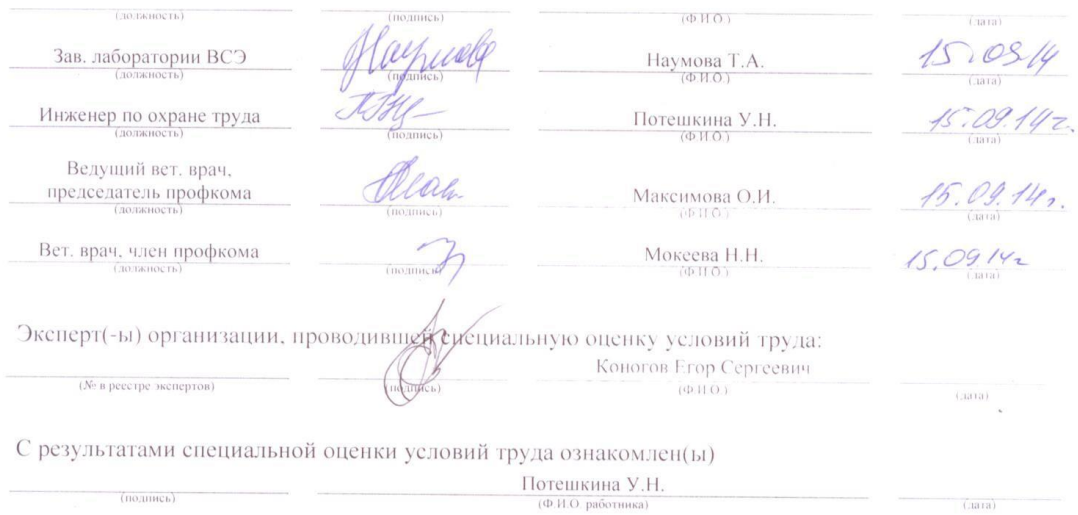 (должность) (подпись) (Ф.И.О.) (дата)
Зав. лаборатории ВСЭ Наумова Наумова Т.А. 15.09.14
(должность) (подпись) (Ф.И.О.) (дата)
Инженер по охране труда Потешкина У.Н. 15.09.14г.
(должность) (подпись) (Ф.И.О.) (дата)
Ведущий вет. врач,
председатель профкома Максимова О.И. 15.09.14г.
(должность) (подпись) (Ф.И.О.) (дата)
Вет. врач, член профкома Мокеева Н.Н. 15.09 14г
(должность) (подпись) (Ф.И.О.) (дата)
Эксперт(-ы) организации, проводившей специальную оценку условий труда:
Коногов Егор Сергеевич
(№ в реестре экспертов) (подпись) (Ф.И.О.) (дата)
С результатами специальной оценки условий труда ознакомлен(ы)
Потешкина У.Н.
(подпись) (Ф.И.О. работника) (дата)